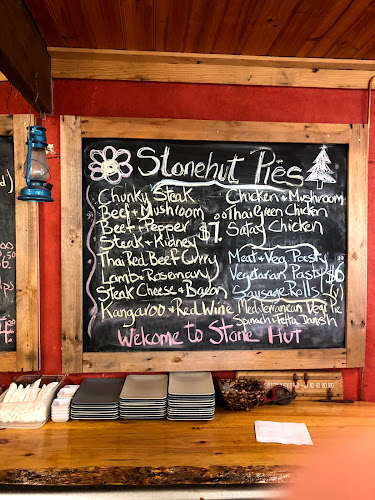 Stonehut Pies
Chunky Steak
Beef + Mushroom
Beef + Pepper
Steak + Kidney
Thai Red Beef Curry
Lamb + Rosemary
Steak Cheese + Bacon
Kangaroo + Red Wine
$7.00
Chicken + Mushroom
Thai Green Chicken
Satay Chicken
Meat + Veg Pasty
Vegetarian Pasty
Sausage Rolls
$6
Mediterranean Veg Pie
Spinach + Fetta Danish
Welcome to Stone Hut